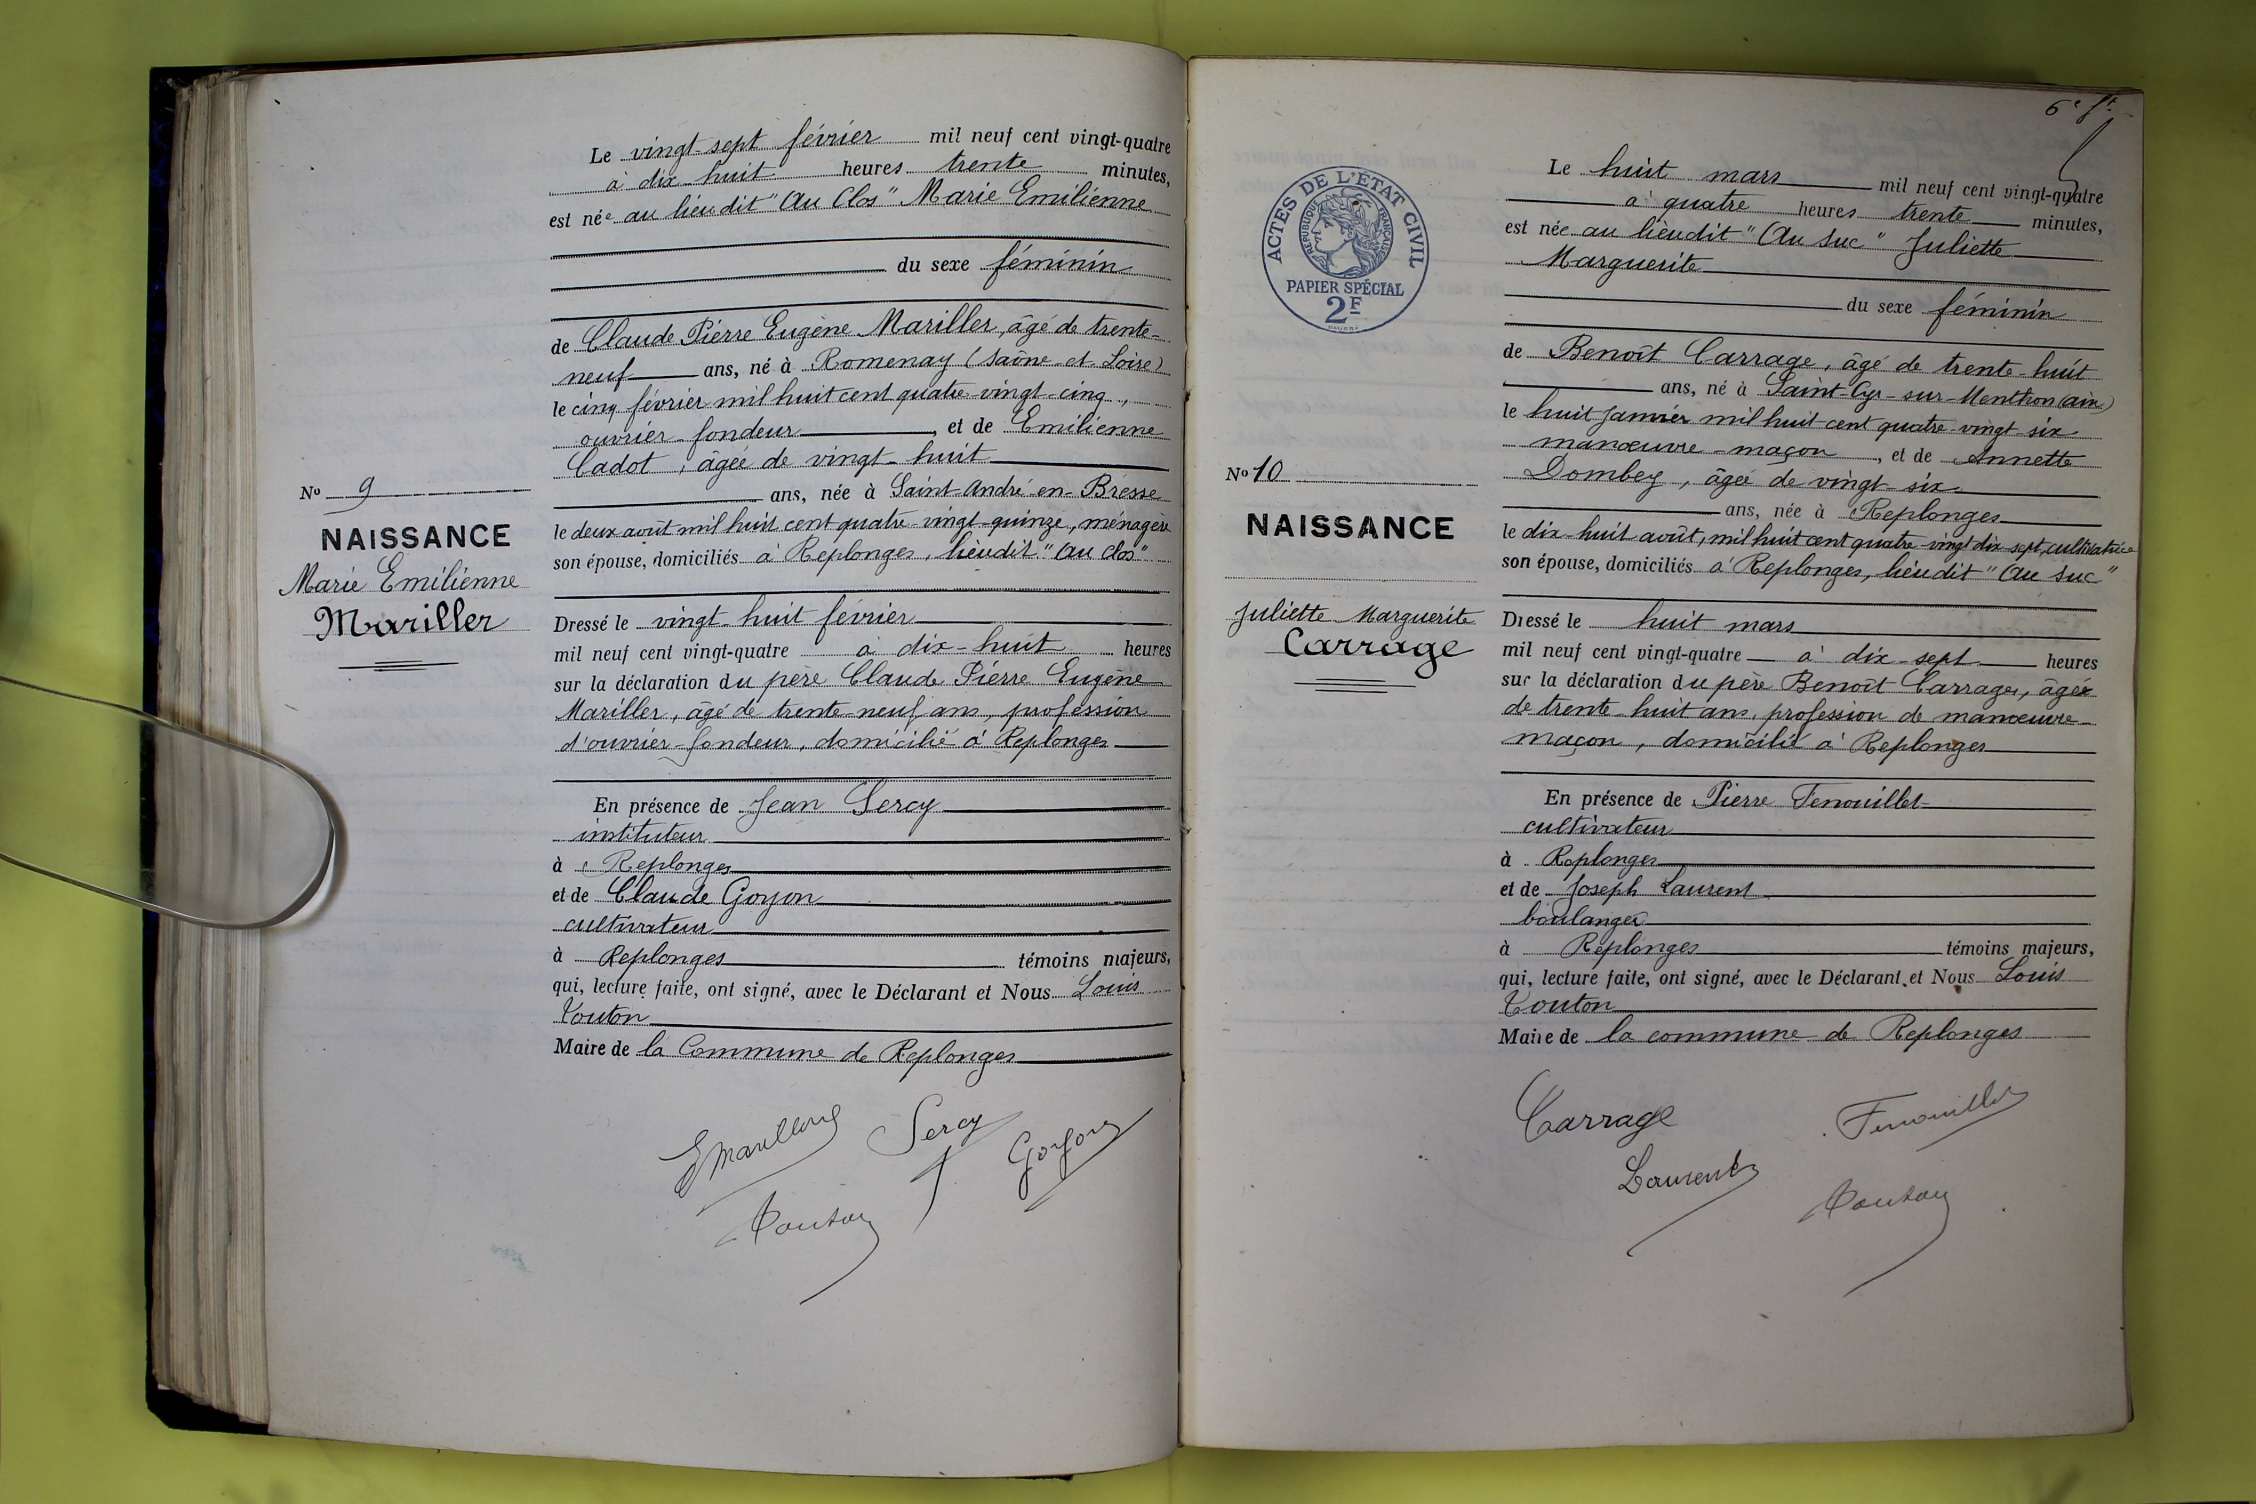 N° 9
NAISSANCE
Marie Emilienne
Mariller
Le vingt-sept février mil neuf cent vingt-quatre
à dix-huit heures trente minutes,
est née au lieudit "Au Clos" Marie Emilienne
du sexe féminin
de Claude Pierre Eugène Mariller, âgé de trente-
neuf ans, né à Romenay (Saône-et-Loire)
le cinq février mil huit cent quatre-vingt-cinq,
ouvrier-fondeur, et de Emilienne
Cadot, âgée de vingt-huit
ans, née à Saint-André-en-Bresse
le deux août mil huit cent quatre-vingt-quinze, ménagère
son épouse, domiciliés à Replonges, lieudit "Au Clos"
Dressé le vingt-huit février
mil neuf cent vingt-quatre à dix-huit heures
sur la déclaration du père Claude Pierre Eugène
Mariller, âgé de trente-neuf ans, profession
d'ouvrier-fondeur, domicilié à Replonges
En présence de Jean Sercy
instituteur
à Replonges
et de Claude Goyon
cultivateur
à Replonges témoins majeurs,
qui, lecture faite, ont signé, avec le Déclarant et Nous Louis
Touton
Maire de la Commune de Replonges
E Mariller Sercy Goyon
Touton
6e ft
ACTES DE L'ÉTAT CIVIL
RÉPUBLIQUE FRANÇAISE
PAPIER SPÉCIAL
2F
N° 10
NAISSANCE
Juliette Marguerite
Carrage
Le huit mars mil neuf cent vingt-quatre
à quatre heures trente minutes,
est née au lieudit "Au Suc" Juliette
Marguerite
du sexe féminin
de Benoît Carrage, âgé de trente-huit
ans, né à Saint-Cyr-sur-Menthon (Ain)
le huit janvier mil huit cent quatre-vingt-six
manœuvre-maçon, et de Annette
Dombey, âgée de vingt-six
ans, née à Replonges
le dix-huit août, mil huit cent quatre-vingt dix-sept, cultivatrice
son épouse, domiciliés à Replonges, lieudit "Au Suc"
Dressé le huit mars
mil neuf cent vingt-quatre à dix-sept heures
sur la déclaration du père Benoît Carrage, âgé
de trente-huit ans, profession de manœuvre-
maçon, domicilié à Replonges
En présence de Pierre Fenouillet
cultivateur
à Replonges
et de Joseph Laurent
boulanger
à Replonges témoins majeurs,
qui, lecture faite, ont signé, avec le Déclarant et Nous Louis
Touton
Maire de la commune de Replonges
Carrage Fenouillet
Laurent
Touton